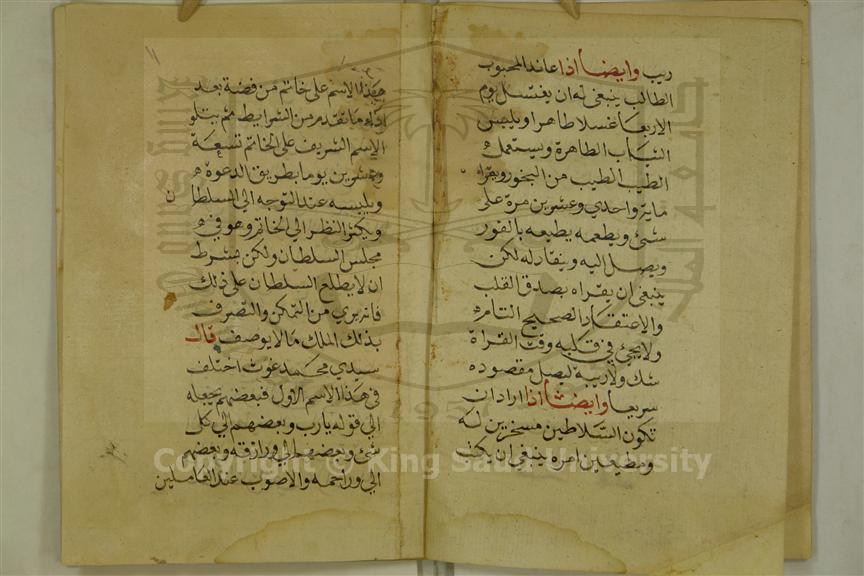 ريب وايضا اذا عاند المحبوب
الطالب ينبغي له ان يغتسل يوم
الاربعا غسلا طاهرا ويلبس
الثياب الطاهرة ويستعمل
الطيب الطيب من البخور ويقراه
ماية واحدي وعشرين مرة على
شئ ويطعمه يطيعه بالفور
ويصل اليه وينقاد له لكن
ينبغي ان يقراه بصدق القلب
والاعتقاد الصحيح التام
ولا يجئ في قلبه وقت القراة
شك ولا ريبة ليصل مقصوده
سريعا وايضا اذا اراد ان
تكون السلاطين مسخرين له
ومطيعين امره ينبغي ان يكتب
١١
هذا الاسم على خاتم من فضة بعد
اداء ما تقدم من الشرايط ثم يتلو
الاسم الشريف على الخاتم تسعة
وعشرين يوما بطريق الدعوة
ويلبسه عند التوجه الي السلطان
ويكثر النظر الي الخاتم وهو في
مجلس السلطان ولكن بشرط
ان لا يطلع السلطان على ذلك
فانه يري من التمكن والتصرف
بذلك الملك ما لا يوصف قال
سيدي محمد غوث اختلف
في هذا الاسم الاول فبعضهم يجعله
الي قوله يا رب وبعضهم الي كل
شئ وبعضهم الي ورازقه وبعضهم
الي وراحمه والاصوب عند العاملين
جامعة الملك سعود
1957
Copyright © King Saud University